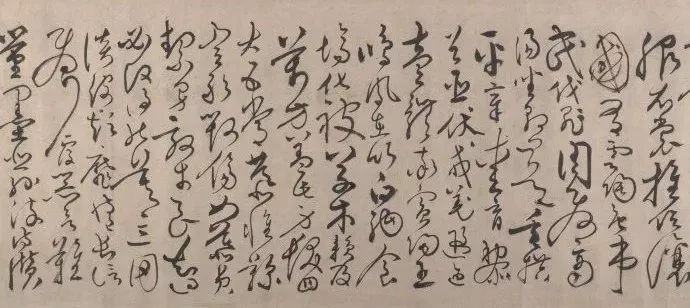 服衣裳推位讓
國有虞陶唐弔
民伐罪周發商
湯坐朝問道垂拱
平章愛育黎
首臣伏戎羌遐邇
壹體率賓歸王
鳴鳳在樹白駒食
場化被草木賴及
萬方蓋此身髮四
大五常恭惟鞠
養豈敢毀傷女慕貞
絜男效才良知過
必改得能莫忘罔
談彼短靡恃己長信
使可覆器欲難
量墨悲絲染詩讚